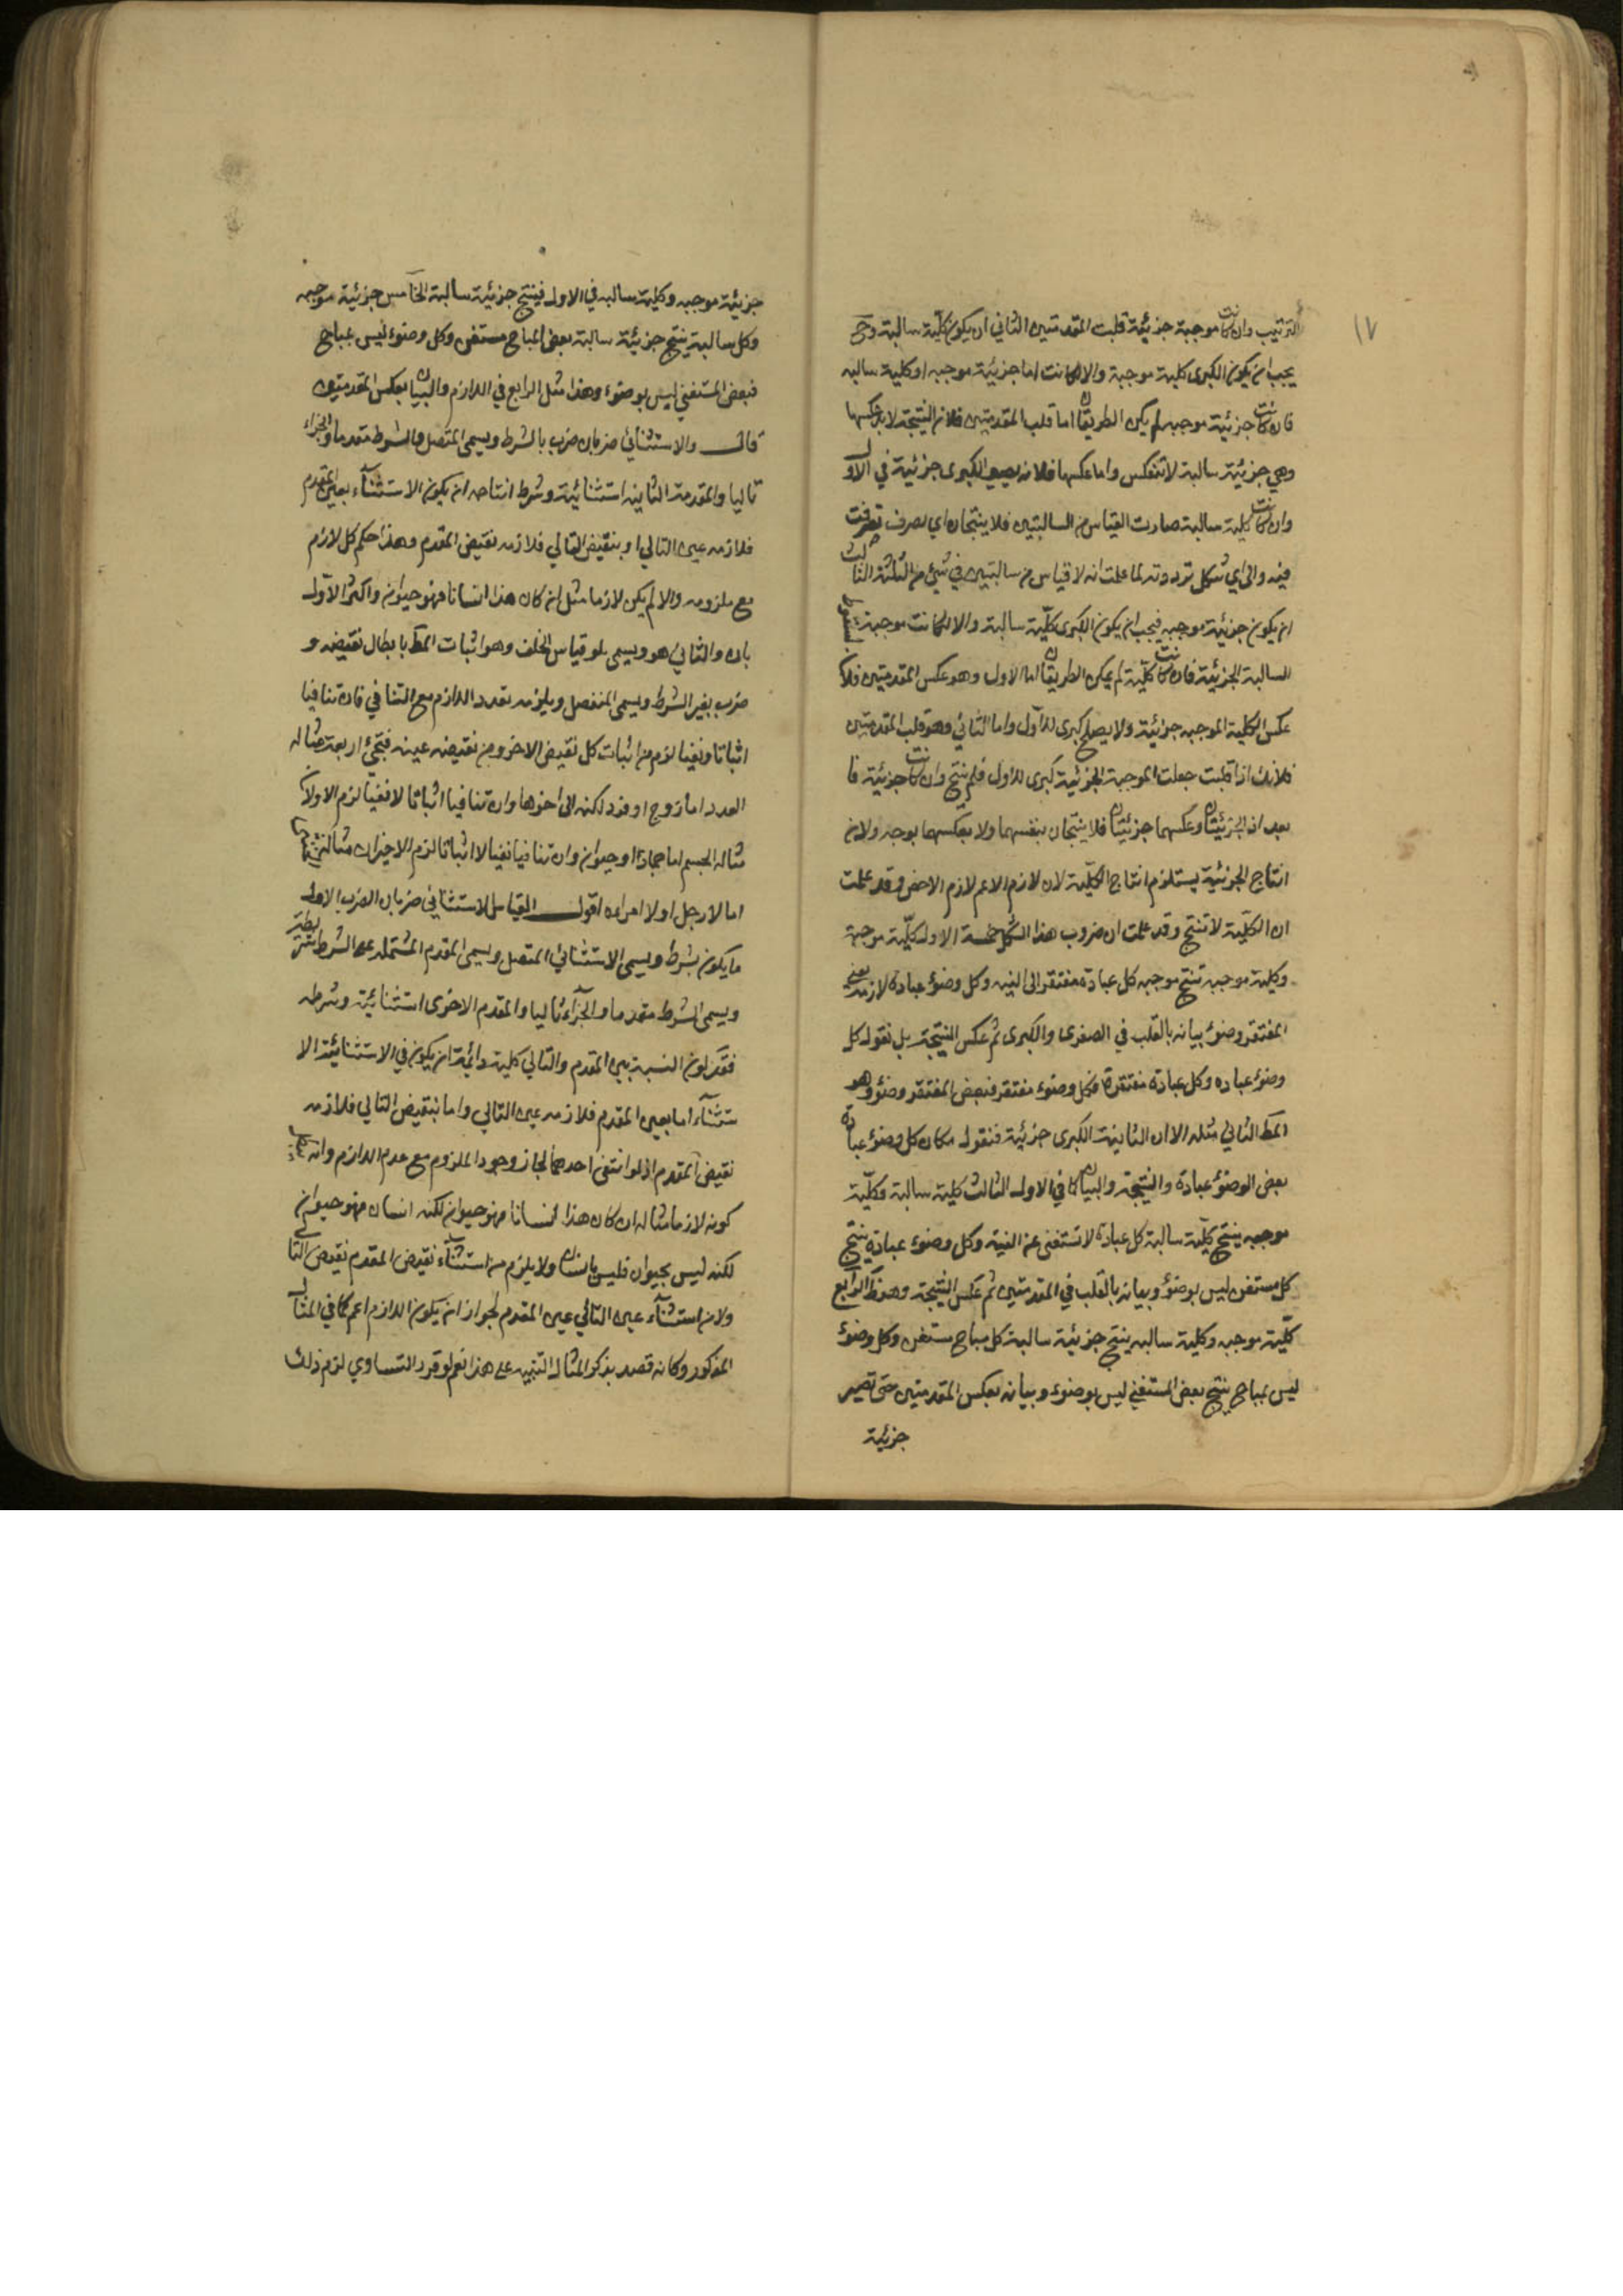 ١٧
الترتيب وان كانت موجبة جزئية قلبت المقدمتين الثاني ان يكون كلية سالبة وح
يجب ان يكون الكبرى كلية موجبة والا لكانت اما جزئية موجبه او كلية سالبه
فان كانت جزئية موجبه لم يكن الطريقان اما قلب المقدمتين فلان النتيجة لا بد عكسها
وهي جزئية سالبة لا تنعكس واما عكسها فلانه يصير الكبرى جزئية في الاول
وان كانت كلية سالبة صارت القياس من السالبتين فلا ينتجان اي تصرف تصرفت
فيه والى اي شكل ترددته لما علمت انه لا قياس من سالبتين في شيء من الثلثة الثالث
ان يكون جزئية موجبه فيجب ان يكون الكبرى كلية سالبة والا لكانت موجبة
السالبة الجزئية فان كانت كلية لم يمكن الطريقان اما الاول وهو عكس المقدمتين فلان
عكس الكلية الموجبه جزئية ولا يصلح كبرى للاول واما الثاني وهو قلب المقدمتين
فلانك اذا قلبت جعلت الموجبة الجزئية كبرى للاول فلم ينتج وان كانت جزئية فا
بعد اذ الجزئيتان وعكسهما جزئيتان فلا ينتجان بنفسهما ولا بعكسهما بوجه ولان
انتاج الجزئية يستلزم انتاج الكلية لان لازم الاعم لازم الاخص وقد علمت
ان الكلية لا تنتج وقد علمت ان ضروب هذا الشكل خمسة الاول كلية موجبة
وكلية موجبه تنتج موجبه كل عبادة مفتقر الى النية وكل وضوء عبادة لازمه بعض
المفتقر وضوء بيانه بالقلب في الصغرى والكبرى ثم عكس النتيجة بل نقول كل
وضوء عباده وكل عبادة مفتقرة فكل وضوء مفتقر فبعض المفتقر وضوء وهو
المط الثاني مثله الا ان الثانية الكبرى جزئية فنقول مكان كل وضوء عبادة
بعض الوضوء عبادة والنتيجة والبيان كما في الاول الثالث كلية سالبة وكلية
موجبه ينتج كلية سالبة كل عبادة لا تستغنى عن النية وكل وضوء عبادة ينتج
كل مستغن ليس بوضوء وبيانه بالقلب في المقدمتين ثم عكس النتيجة وهو المط الرابع
كلية موجبه وكلية سالبه ينتج جزئية سالبة كل مباح مستغن وكل وضوء
ليس بمباح ينتج بعض المستغني ليس بوضوء وبيانه بعكس المقدمتين حتى تصير
جزئية
جزئية موجبه وكلية سالبه في الاول فينتج جزئية سالبة الخامس جزئية موجبه
وكل سالبة ينتج جزئية سالبة بعض المباح مستغن وكل وضوء ليس بمباح
فبعض المستغني ليس بوضوء وهذا مثل الرابع في اللازم والبيان بعكس المقدمتين
قال والاستثنائي ضربان ضرب بالشرط ويسمى المتصل والشرط مقدما والجزاء
تاليا والمقدمة الثانية استثنائية وشرط انتاجه ان يكون الاستثناء بعين المقدم
فلازمه عين التالي او بنقيض التالي فلازمه نقيض المقدم وهذا حكم كل لازم
مع ملزومه والا لم يكن لازما مثل ان كان هذا انسانا فهو حيوان واكثر الاول
بان والثاني هو ويسمى بلو قياس الخلف وهو اثبات المط بابطال نقيضه و
ضرب بغير الشرط ويسمى المنفصل ويلزمه تعدد اللازم مع التنافي فان تنافيا
اثباتا ونفيا لزم من اثبات كل نقيض الاخر ومن نقيضه عينه فتجئ اربعة مثاله
العدد اما زوج او فرد لكنه الى اخرها وان تنافيا اثباتا لا نفيا لزم الاولان
مثاله الجسم اما جماد او حيوان وان تنافيا نفيا لا اثباتا لزم الاخيران مثاله
اما لا رجل او لا امراه اقول القياس الاستثنائي ضربان الضرب الاول
ما يكون بشرط ويسمى الاستثنائي المتصل ويسمى المقدم المشتمله على الشرط شرطية
ويسمى الشرط مقدما والجزاء تاليا والمقدم الاخرى استثنائية وشرطه
فقد كون النسبة بين المقدم والتالي كلية دائمة ان يكون في الاستثنائية الا
ستثناء اما بعين المقدم فلازمه عين التالي واما بنقيض التالي فلازمه
نقيض المقدم اذ لو انتفى احدهما لجاز وجود الملزوم مع عدم اللازم وانه
كونه لازما مثاله ان كان هذا انسانا فهو حيوان لكنه انسان فهو حيوان
لكنه ليس بحيوان فليس بانسان ولا يلزم من استثناء نقيض المقدم نقيض التالي
ولا من استثناء عين التالي عين المقدم لجواز ان يكون اللازم اعم كما في المثال
المذكور وكانه قصد بذكر المثال التنبيه على هذا نعم لو قدر التساوي لزم ذلك